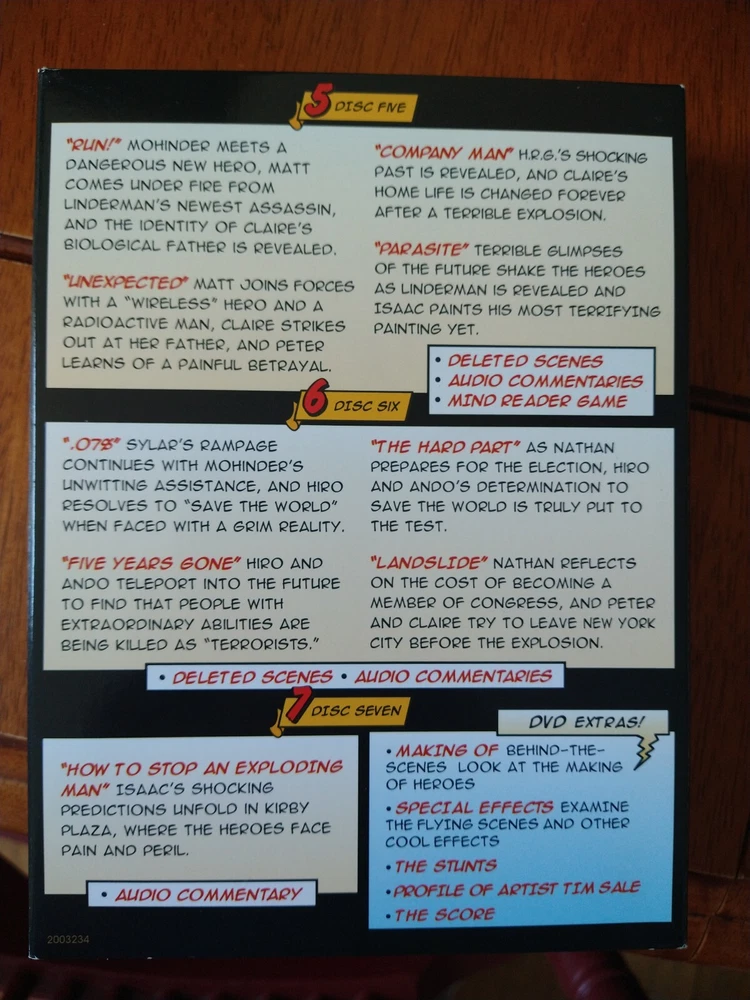 5 DISC FIVE
"RUN!" MOHINDER MEETS A
DANGEROUS NEW HERO, MATT
COMES UNDER FIRE FROM
LINDERMAN'S NEWEST ASSASSIN,
AND THE IDENTITY OF CLAIRE'S
BIOLOGICAL FATHER IS REVEALED.
"UNEXPECTED" MATT JOINS FORCES
WITH A "WIRELESS" HERO AND A
RADIOACTIVE MAN, CLAIRE STRIKES
OUT AT HER FATHER, AND PETER
LEARNS OF A PAINFUL BETRAYAL.
"COMPANY MAN" H.R.G.'S SHOCKING
PAST IS REVEALED, AND CLAIRE'S
HOME LIFE IS CHANGED FOREVER
AFTER A TERRIBLE EXPLOSION.
"PARASITE" TERRIBLE GLIMPSES
OF THE FUTURE SHAKE THE HEROES
AS LINDERMAN IS REVEALED AND
ISAAC PAINTS HIS MOST TERRIFYING
PAINTING YET.
• DELETED SCENES
• AUDIO COMMENTARIES
• MIND READER GAME
6 DISC SIX
".07%" SYLAR'S RAMPAGE
CONTINUES WITH MOHINDER'S
UNWITTING ASSISTANCE, AND HIRO
RESOLVES TO "SAVE THE WORLD"
WHEN FACED WITH A GRIM REALITY.
"FIVE YEARS GONE" HIRO AND
ANDO TELEPORT INTO THE FUTURE
TO FIND THAT PEOPLE WITH
EXTRAORDINARY ABILITIES ARE
BEING KILLED AS "TERRORISTS."
"THE HARD PART" AS NATHAN
PREPARES FOR THE ELECTION, HIRO
AND ANDO'S DETERMINATION TO
SAVE THE WORLD IS TRULY PUT TO
THE TEST.
"LANDSLIDE" NATHAN REFLECTS
ON THE COST OF BECOMING A
MEMBER OF CONGRESS, AND PETER
AND CLAIRE TRY TO LEAVE NEW YORK
CITY BEFORE THE EXPLOSION.
• DELETED SCENES • AUDIO COMMENTARIES
7 DISC SEVEN
"HOW TO STOP AN EXPLODING
MAN" ISAAC'S SHOCKING
PREDICTIONS UNFOLD IN KIRBY
PLAZA, WHERE THE HEROES FACE
PAIN AND PERIL.
• AUDIO COMMENTARY
DVD EXTRAS!
• MAKING OF BEHIND-THE-
SCENES LOOK AT THE MAKING
OF HEROES
• SPECIAL EFFECTS EXAMINE
THE FLYING SCENES AND OTHER
COOL EFFECTS
• THE STUNTS
• PROFILE OF ARTIST TIM SALE
• THE SCORE
2003234